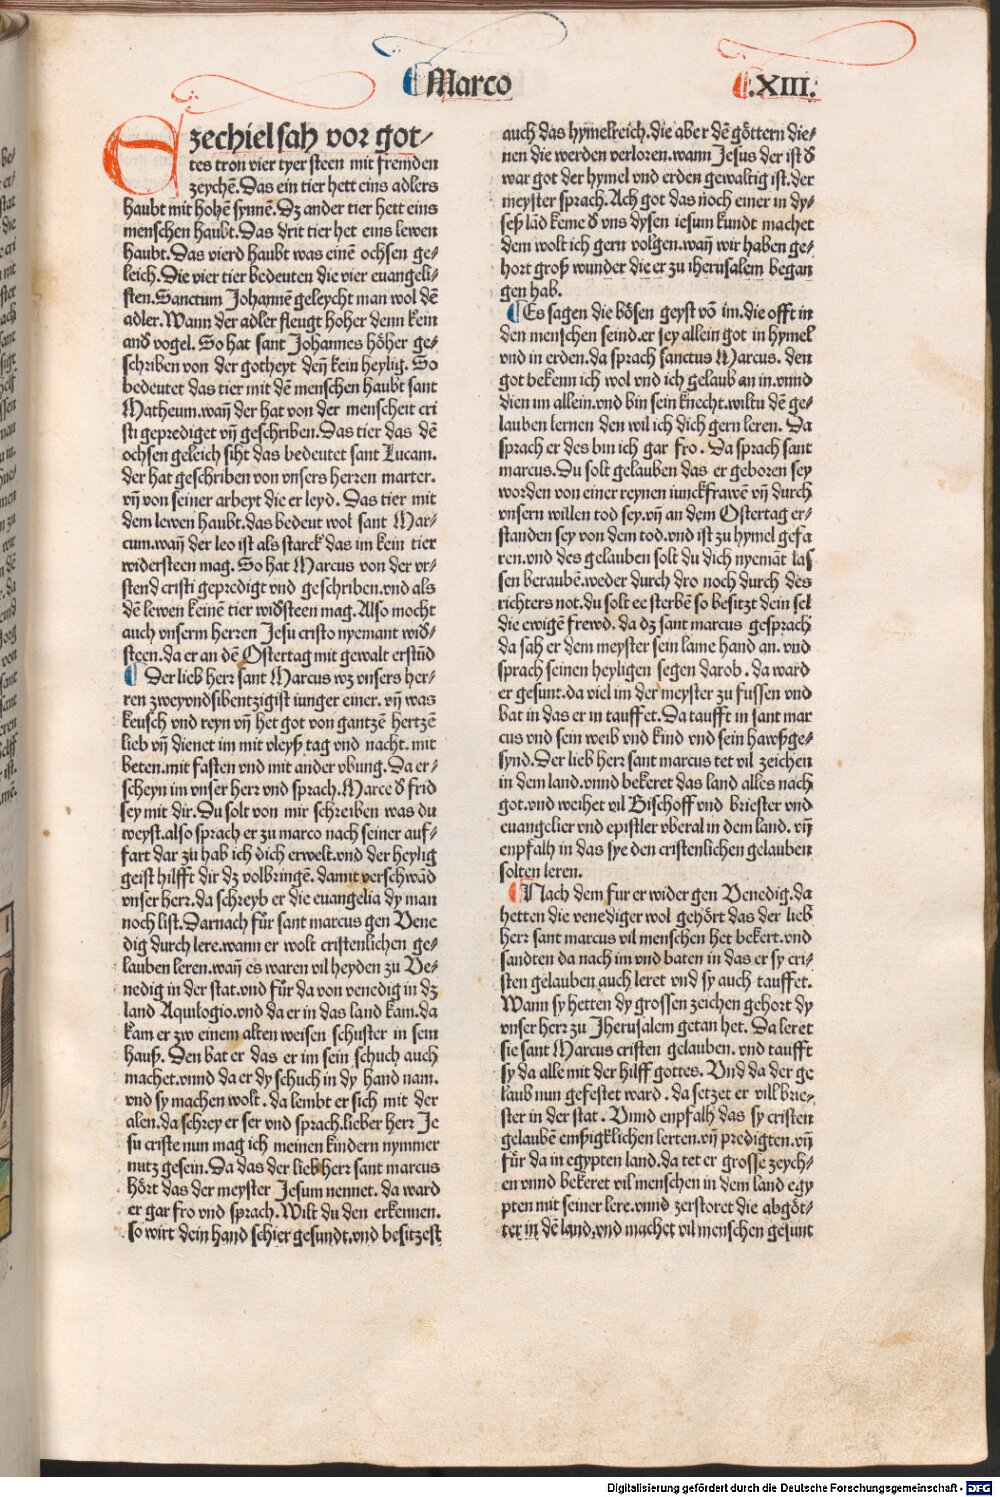 Marco
.XIII.
Ezechiel sah vor got⸗
tes tron vier tyer steen mit fremden
zeychē. Das ein tier hett eins adlers
haubt mit hohen synnē. Dz ander tier hett eins
menschen haubt. Das drit tier het eins lewen
haubt. Das vierd haubt was einē ochsen ge⸗
leich. Die vier tier bedeuten die vier euangeli⸗
sten. Sanctum Johannē geleycht man wol dē
adler. Wann der adler fleugt hoher denn kein
and vogel. So hat sant Johannes höher ge⸗
schriben von der gotheyt deñ kein heylig. So
bedeutet das tier mit dē menschen haubt sant
Matheum. wañ der hat von der menscheit cri
sti geprediget vñ geschriben. Das tier das dē
ochsen geleich siht das bedeutet sant Lucam.
der hat geschriben von vnsers herren marter.
vñ von seiner arbeyt die er leyd. Das tier mit
dem lewen haubt. das bedeut wol sant Mar⸗
cum. wañ der leo ist als starck das im kein tier
widersteen mag. So hat Marcus von der vr⸗
stend cristi gepredigt vnd geschriben. vnd als
dē lewen keinē tier wiđsteen mag. Also mocht
auch vnserm herren Jesu cristo nyemant wiđ⸗
steen. da er an dē Ostertag mit gewalt erstūd
¶ Der lieb herr sant Marcus wz vnsers her⸗
ren zweyvndsibentzigist iunger einer. vñ was
keusch vnd reyn vñ het got von gantzē hertzē
lieb vñ dienet im mit vleyß tag vnd nacht. mit
beten. mit fasten vnd mit ander vbung. Da er⸗
scheyn im vnser herr vnd sprach. Marce đ frid
sey mit dir. Du solt von mir schreiben was du
weyst. also sprach er zu marco nach seiner auf⸗
fart dar zu hab ich dich erwelt. vnd der heylig
geist hilfft dir dz volbringē. damit verschwād
vnser herr. da schreyb er die euangelia dy man
noch list. Darnach für sant marcus gen Vene
dig durch lere. wann er wolt cristenlichen ge⸗
lauben leren. wañ es waren vil heyden zu Ve⸗
nedig in der stat. vnd für da von venedig in dz
land Aquilogio. vnd da er in das land kam. da
kam er zw einem alten weisen schuster in sein
hauß. Den bat er das er im sein schuch auch
machet. vnnd da er dy schuch in dy hand nam.
vnd sy machen wolt. da lembt er sich mit der
alen. da schrey er ser vnd sprach. lieber herr Je
su criste nun mag ich meinen kindern nymmer
nutz gesein. Da das der lieb herr sant marcus
hört das der meyster Jesum nennet. da ward
er gar fro vnd sprach. Wilt du den erkennen.
so wirt dein hand schier gesundt. vnd besitzest
auch das hymelreich. die aber dē göttern die⸗
nen die werden verloren. wann Jesus der ist đ
war got der hymel vnd erden gewaltig ist. der
meyster sprach. Ach got das noch einer in dy⸗
seß lād keme đ vns dysen iesum kundt machet
dem wolt ich gern volgen. wañ wir haben ge⸗
hort groß wunder die er zu iherusalem began
gen hab.
¶ Es sagen die bösen geyst vō im. die offt in
den menschen seind. er sey allein got in hymel
vnd in erden. da sprach sanctus Marcus. den
got bekenn ich wol vnd ich gelaub an in. vnnd
dien im allein. vnd bin sein knecht. wiltu dē ge⸗
lauben lernen den wil ich dich gern leren. Da
sprach er des bin ich gar fro. Da sprach sant
marcus. Du solt gelauben das er geboren sey
worden von einer reynen iunckfrawē vñ durch
vnsern willen tod sey. vñ an dem Ostertag er⸗
standen sey von dem tod. vnd ist zu hymel gefa
ren. vnd des gelauben solt du dich nyemāt las
sen beraubē. weder durch dro noch durch des
richters not. du solt ee sterbē so besitzt dein sel
die ewigē frewd. da dz sant marcus gesprach
da sah er dem meyster sein lame hand an. vnd
sprach seinen heyligen segen darob. da ward
er gesunt. da viel im der meyster zu fussen vnd
bat in das er in tauffet. Da taufft in sant mar
cus vnd sein weib vnd kind vnd sein hawßge⸗
synd. Der lieb herr sant marcus tet vil zeichen
in dem land. vnnd bekeret das land alles nach
got. vnd weihet vil Bischoff vnd briester vnd
euangelier vnd epistler vberal in dem land. vñ
enpfalh in das sye den cristenlichen gelauben
solten leren.
¶ Nach dem fur er wider gen Venedig. da
hetten die venediger wol gehört das der lieb
herr sant marcus vil menschen het bekert. vnd
sandten da nach im vnd baten in das er sy cri⸗
sten gelauben auch leret vnd sy auch tauffet.
Wann sy hetten dy grossen zeichen gehort dy
vnser herr zu Jherusalem getan het. Da leret
sie sant Marcus cristen gelauben. vnd taufft
sy da alle mit der hilff gottes. Vnd da der ge
laub nun gefestet ward. da setzet er vill brie⸗
ster in der stat. Vnnd enpfalh das sy cristen
gelaubē emßigklichen lerten. vñ predigten. vñ
für da in egypten land. da tet er grosse zeych⸗
en vnnd bekeret vil menschen in dem land egy
pten mit seiner lere. vnnd zerstoret die abgöt⸗
ter in dē land. vnd machet vil menschen gesunt
Digitalisierung gefördert durch die Deutsche Forschungsgemeinschaft - DFG